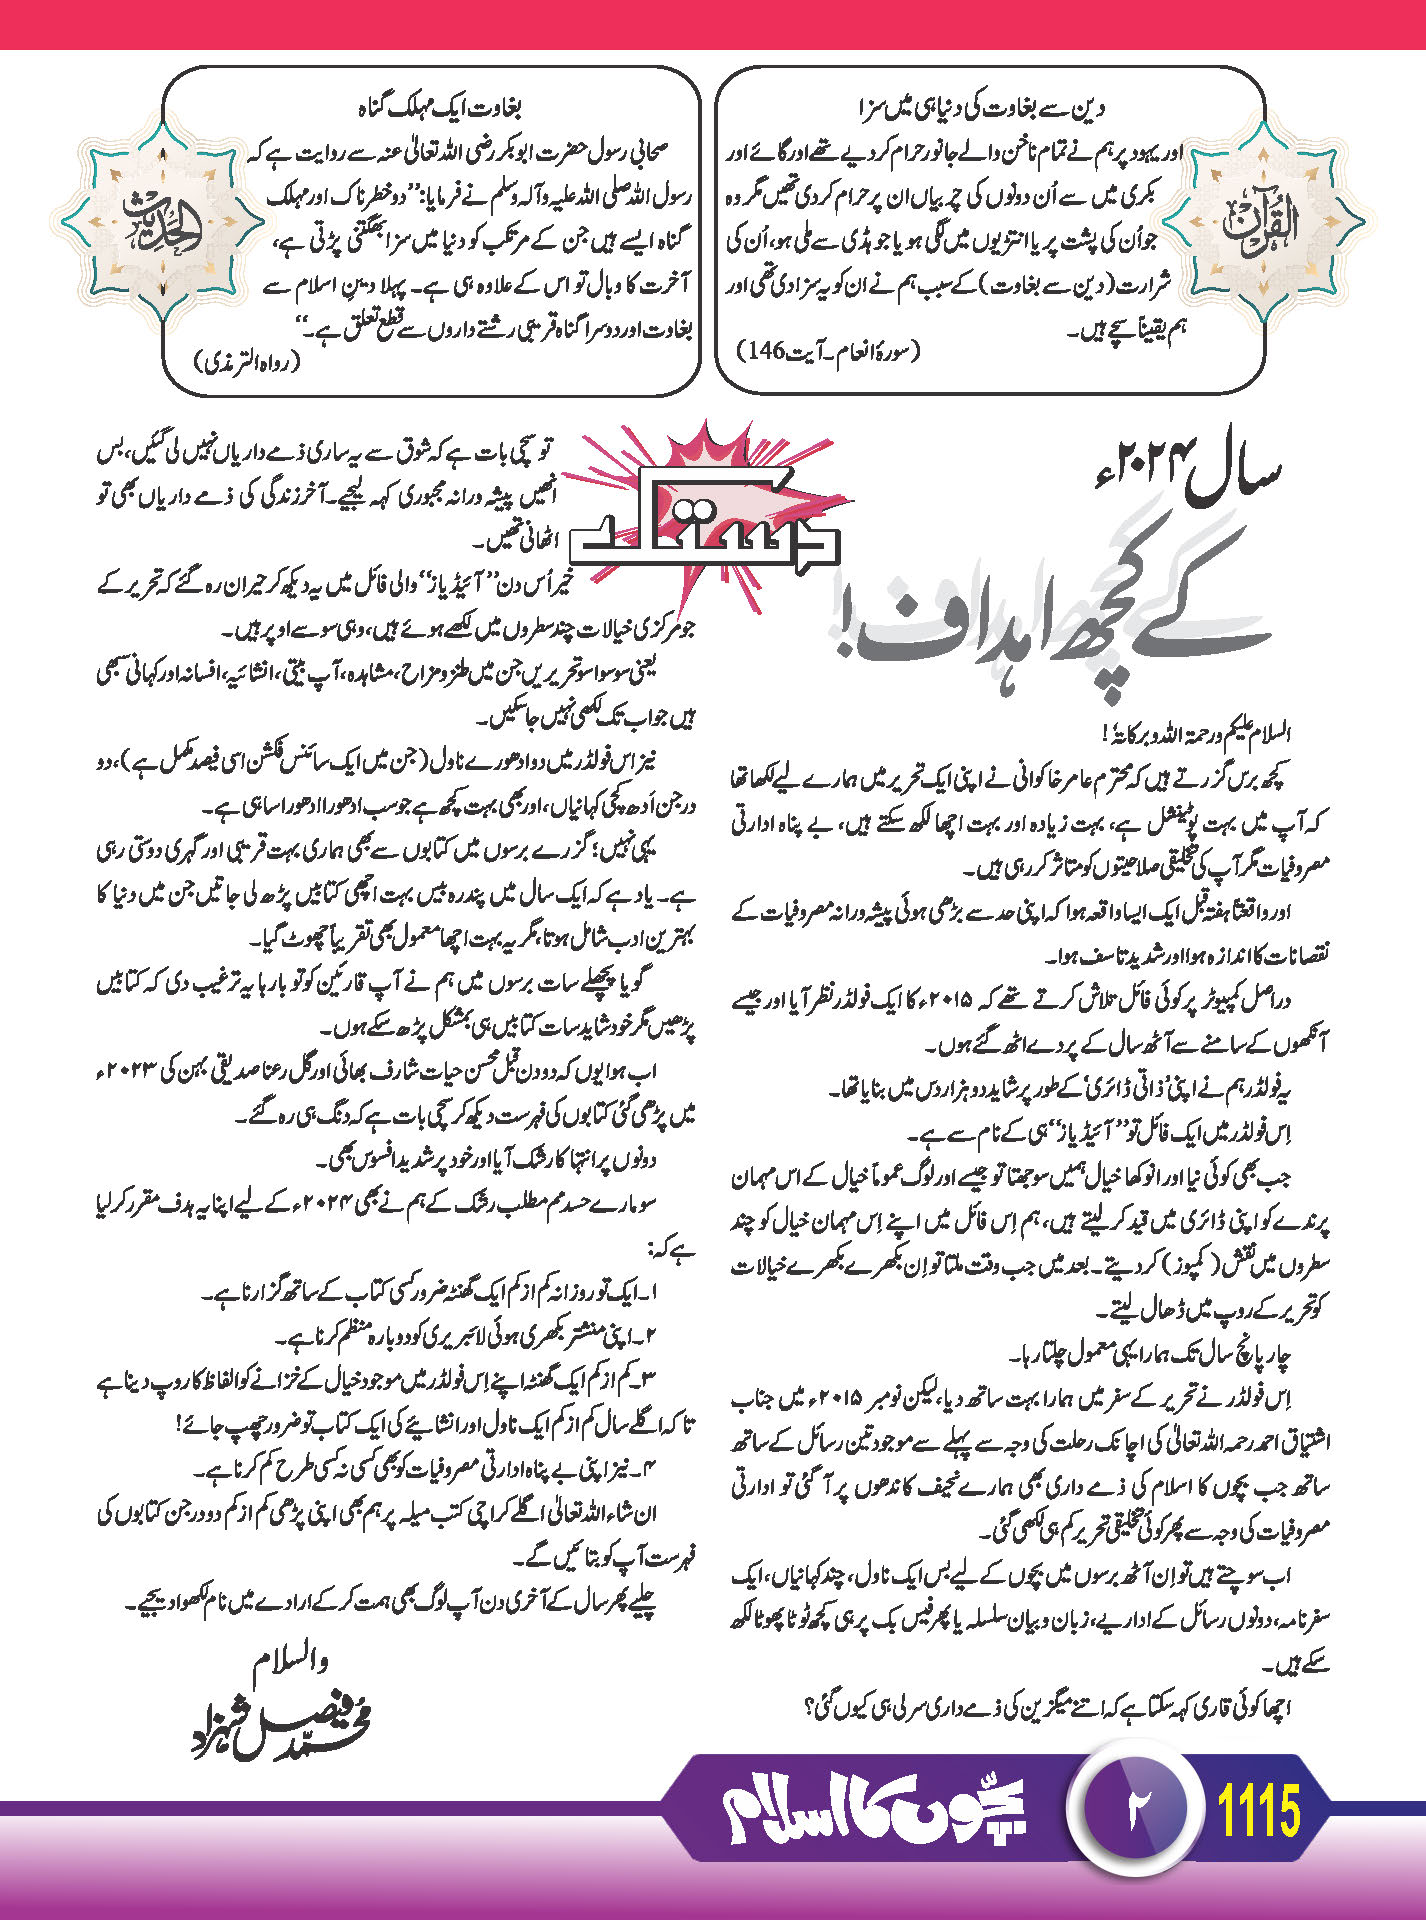 دین سے بغاوت کی دنیا ہی میں سزا
اور یہود پر ہم نے تمام ناخن والے جانور حرام کر دیے تھے اور گائے اور
بکری میں سے اُن دونوں کی چربیاں ان پر حرام کر دی تھیں مگر وہ
جو اُن کی پشت پر یا انتڑیوں میں لگی ہو یا جو ہڈی سے ملی ہو، اُن کی
شرارت (دین سے بغاوت) کے سبب ہم نے ان کو یہ سزا دی تھی اور
ہم یقیناً سچے ہیں۔
(سورۂ انعام۔ آیت 146)
القرآن
بغاوت ایک مہلک گناہ
صحابی رسول حضرت ابوبکر رضی اللہ تعالیٰ عنہ سے روایت ہے کہ
رسول اللہ صلی اللہ علیہ وآلہ وسلم نے فرمایا: ”دو خطرناک اور مہلک
گناہ ایسے ہیں جن کے مرتکب کو دنیا میں سزا بھگتنی پڑتی ہے،
آخرت کا وبال تو اس کے علاوہ ہی ہے۔ پہلا دینِ اسلام سے
بغاوت اور دوسرا گناہ قریبی رشتے داروں سے قطع تعلق ہے۔“
(رواہ الترمذی)
الحدیث
دستک
سال ۲۰۲۴ء
کے کچھ اہداف!
السلام علیکم ورحمۃ اللہ وبرکاتہٗ!
کچھ برس گزرتے ہیں کہ محترم عامر خاکوانی نے اپنی ایک تحریر میں ہمارے لیے لکھا تھا
کہ آپ میں بہت پوٹینشل ہے، بہت زیادہ اور بہت اچھا لکھ سکتے ہیں، بے پناہ ادارتی
مصروفیات مگر آپ کی تخلیقی صلاحیتوں کو متاثر کر رہی ہیں۔
اور واقعتاً ہفتہ قبل ایک ایسا واقعہ ہوا کہ اپنی حد سے بڑھی ہوئی پیشہ ورانہ مصروفیات کے
نقصانات کا اندازہ ہوا اور شدید تاسف ہوا۔
دراصل کمپیوٹر پر کوئی فائل تلاش کرتے تھے کہ ۲۰۱۵ء کا ایک فولڈر نظر آیا اور جیسے
آنکھوں کے سامنے سے آٹھ سال کے پردے اٹھ گئے ہوں۔
یہ فولڈر ہم نے اپنی ’ذاتی ڈائری‘ کے طور پر شاید دو ہزار دس میں بنایا تھا۔
اِس فولڈر میں ایک فائل تو ”آئیڈیاز“ ہی کے نام سے ہے۔
جب بھی کوئی نیا اور انوکھا خیال ہمیں سوجھتا تو جیسے اور لوگ عموماً خیال کے اس مہمان
پرندے کو اپنی ڈائری میں قید کر لیتے ہیں، ہم اِس فائل میں اپنے اِس مہمان خیال کو چند
سطروں میں نقش (کمپوز) کر دیتے۔ بعد میں جب وقت ملتا تو اِن بکھرے بکھرے خیالات
کو تحریر کے روپ میں ڈھال لیتے۔
چار پانچ سال تک ہمارا یہی معمول چلتا رہا۔
اِس فولڈر نے تحریر کے سفر میں ہمارا بہت ساتھ دیا، لیکن نومبر ۲۰۱۵ء میں جناب
اشتیاق احمد رحمہ اللہ تعالیٰ کی اچانک رحلت کی وجہ سے پہلے سے موجود تین رسائل کے ساتھ
ساتھ جب بچوں کا اسلام کی ذمے داری بھی ہمارے نحیف کاندھوں پر آ گئی تو ادارتی
مصروفیات کی وجہ سے پھر کوئی تخلیقی تحریر کم ہی لکھی گئی۔
اب سوچتے ہیں تو اِن آٹھ برسوں میں بچوں کے لیے بس ایک ناول، چند کہانیاں، ایک
سفرنامہ، دونوں رسائل کے اداریے، زبان و بیان سلسلہ یا پھر فیس بک پر ہی کچھ ٹوٹا پھوٹا لکھ
سکے ہیں۔
اچھا کوئی قاری کہہ سکتا ہے کہ اتنے میگزین کی ذمے داری سر لی ہی کیوں گئی؟
تو سچی بات ہے کہ شوق سے یہ ساری ذمے داریاں نہیں لی گئیں، بس
انھیں پیشہ ورانہ مجبوری کہہ لیجیے۔ آخر زندگی کی ذمے داریاں بھی تو
اٹھانی تھیں۔
خیر اُس دن ”آئیڈیاز“ والی فائل میں یہ دیکھ کر حیران رہ گئے کہ تحریر کے
جو مرکزی خیالات چند سطروں میں لکھے ہوئے ہیں، وہی سو سے اوپر ہیں۔
یعنی سو سوا سو تحریریں جن میں طنز و مزاح، مشاہدہ، آپ بیتی، انشائیہ، افسانہ اور کہانی سبھی
ہیں جو اب تک لکھی نہیں جا سکیں۔
نیز اس فولڈر میں دو ادھورے ناول (جن میں ایک سائنس فکشن اسی فیصد مکمل ہے)، دو
درجن اَدھ کچی کہانیاں، اور بھی بہت کچھ ہے جو سب ادھورا ادھورا سا ہی ہے۔
یہی نہیں؛ گزرے برسوں میں کتابوں سے بھی ہماری بہت قریبی اور گہری دوستی رہی
ہے۔ یاد ہے کہ ایک سال میں پندرہ بیس بہت اچھی کتابیں پڑھ لی جاتیں جن میں دنیا کا
بہترین ادب شامل ہوتا، مگر یہ بہت اچھا معمول بھی تقریباً چھوٹ گیا۔
گویا پچھلے سات برسوں میں ہم نے آپ قارئین کو تو بارہا یہ ترغیب دی کہ کتابیں
پڑھیں مگر خود شاید سات کتابیں ہی بمشکل پڑھ سکے ہوں۔
اب ہوا یوں کہ دو دن قبل محسن حیات شارف بھائی اور گل رعنا صدیقی بہن کی ۲۰۲۳ء
میں پڑھی گئی کتابوں کی فہرست دیکھ کر سچی بات ہے کہ دنگ ہی رہ گئے۔
دونوں پر انتہا کا رشک آیا اور خود پر شدید افسوس بھی۔
سو مارے حسد مم مطلب رشک کے ہم نے بھی ۲۰۲۴ء کے لیے اپنا یہ ہدف مقرر کر لیا
ہے کہ:
۱۔ ایک تو روزانہ کم از کم ایک گھنٹہ ضرور کسی کتاب کے ساتھ گزارنا ہے۔
۲۔ اپنی منتشر بکھری ہوئی لائبریری کو دوبارہ منظم کرنا ہے۔
۳۔ کم از کم ایک گھنٹہ اپنے اِس فولڈر میں موجود خیال کے خزانے کو الفاظ کا روپ دینا ہے
تاکہ اگلے سال کم از کم ایک ناول اور انشائیے کی ایک کتاب تو ضرور چھپ جائے!
۴۔ نیز اپنی بے پناہ ادارتی مصروفیات کو بھی کسی نہ کسی طرح کم کرنا ہے۔
ان شاء اللہ تعالیٰ اگلے کراچی کتب میلہ پر ہم بھی اپنی پڑھی کم از کم دو درجن کتابوں کی
فہرست آپ کو بتائیں گے۔
چلیے پھر سال کے آخری دن آپ لوگ بھی ہمت کر کے ارادے میں نام لکھوا دیجیے۔
والسلام
محمد فیصل شہزاد
بچوں کا اسلام
۲
1115